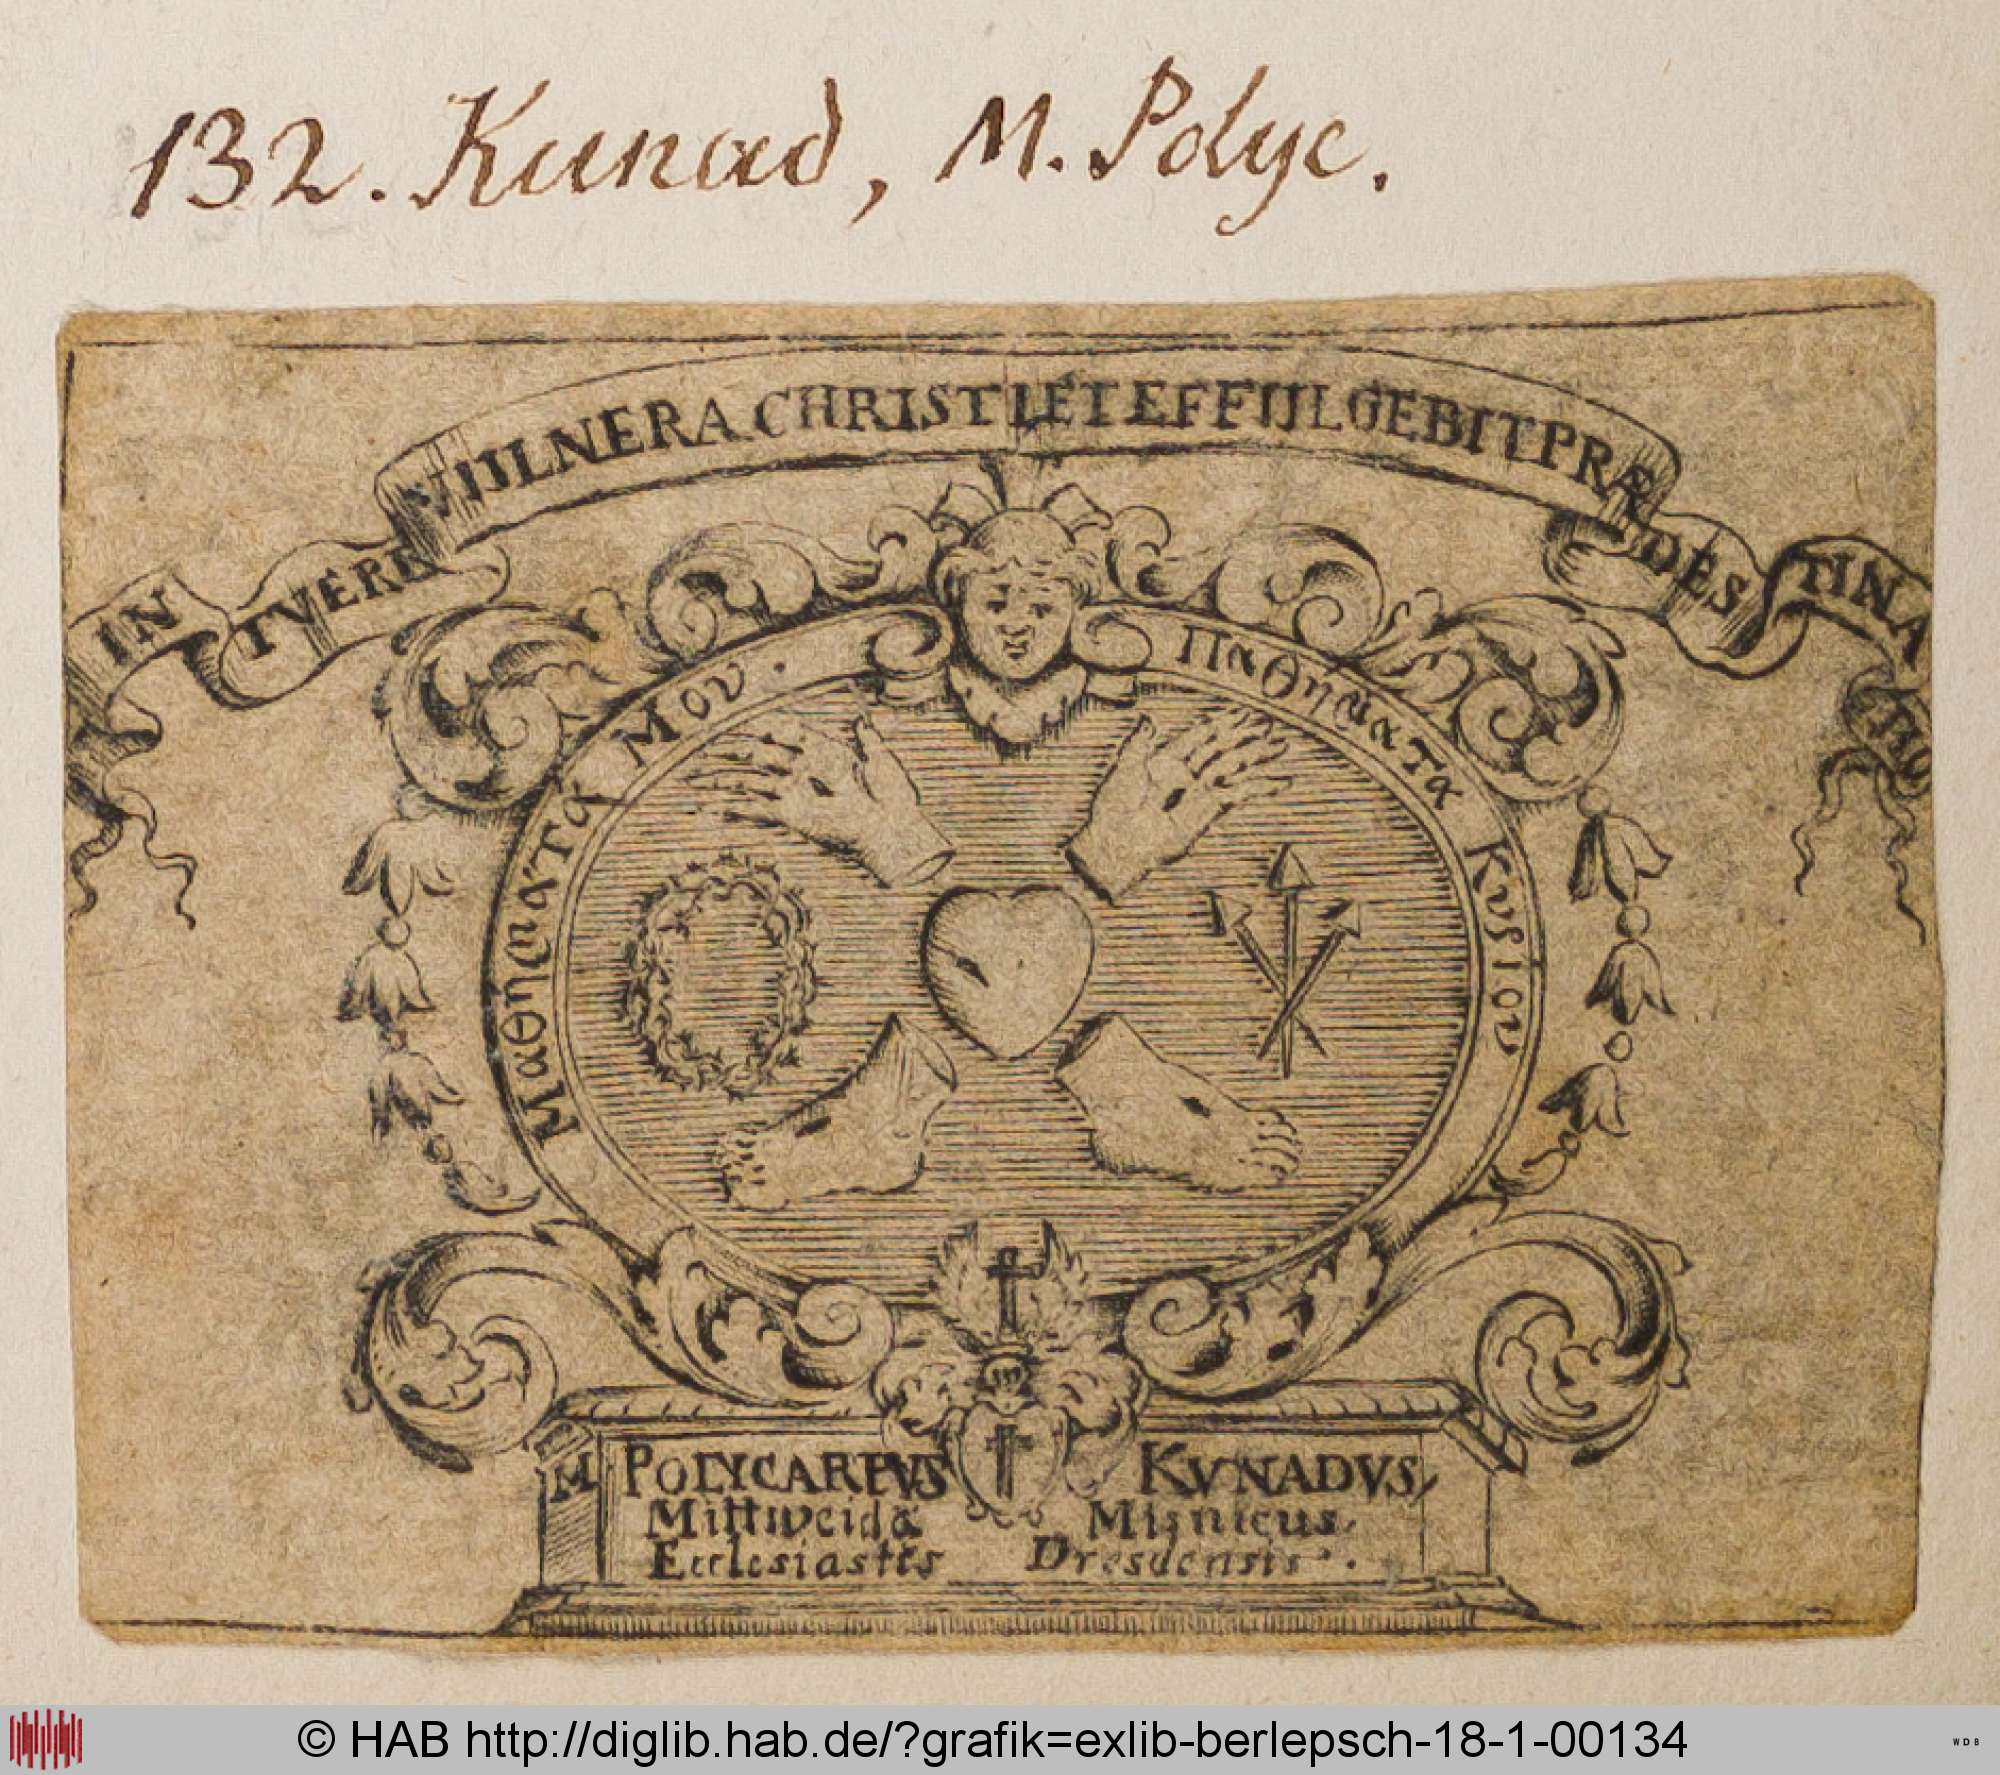 132. Kunad, M. Polyc.
INTVERE VULNERA CHRISTI ET EFFULGEBIT PRÆDESTINATIO
Παθηματα Κυριου
Μαθηματα Μου.
M. POLYCARPVS KVNADVS,
Mittweidâ Misnicus.
Ecclesiastes Dresdensis.
© HAB http://diglib.hab.de/?grafik=exlib-berlepsch-18-1-00134
WDB